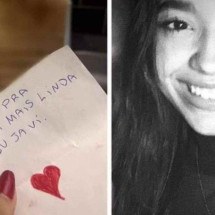 PRA
MAIS LINDA
JÁ VI.